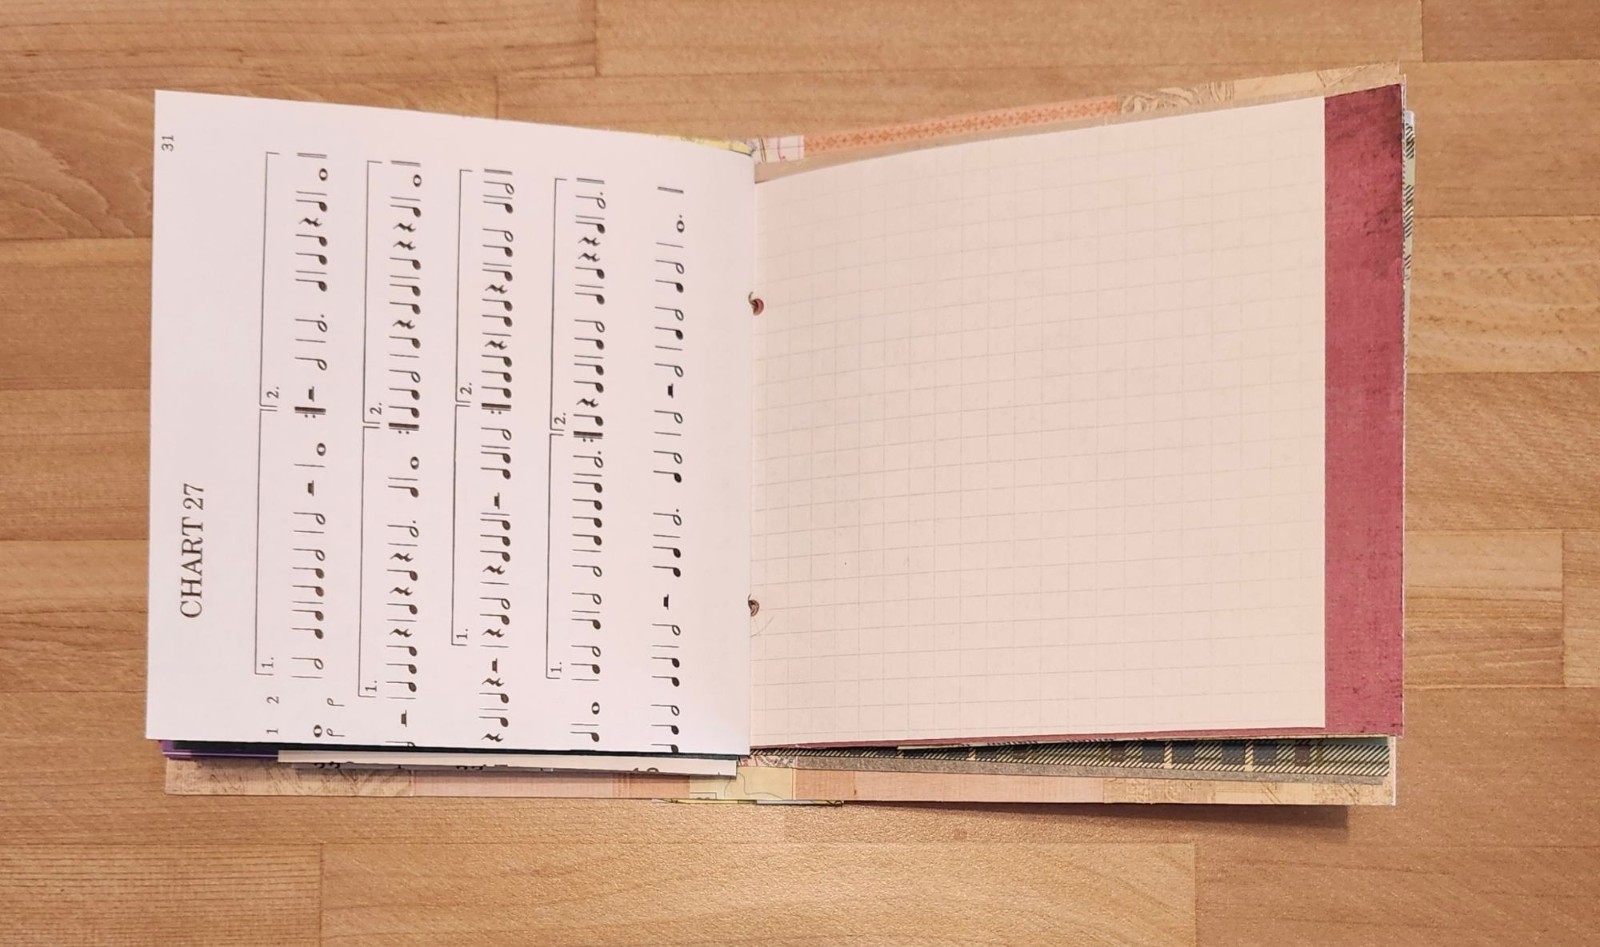 31
CHART 27
1 2 1. 2.
1. 2.
1. 2.
1. 2.